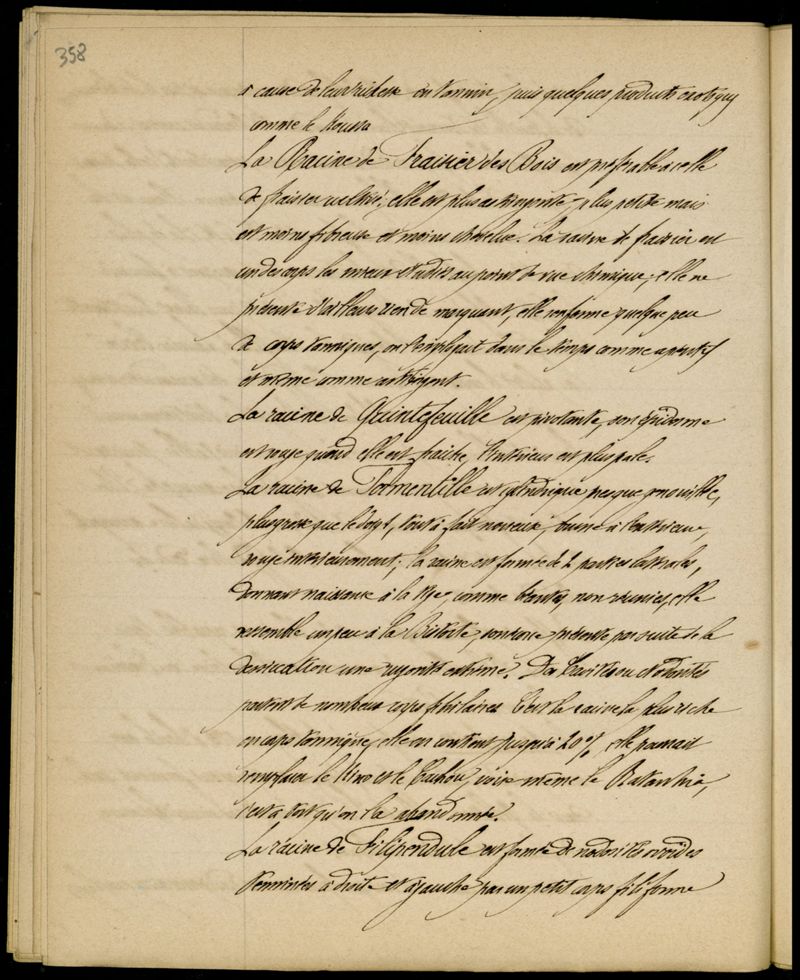 358
à cause de leur richesse en tannin, puis quelques produits exotiques
comme le Kousso
La Racine de Fraisier des Bois est préférable à celle
de fraisier cultivé; elle est plus astringente, plus petite mais
est moins fibreuse et moins chevelue. La racine de fraisier est
un des corps les mieux étudiés au point de vue chimique; elle ne
présente d'ailleurs rien de marquant, elle renferme quelque peu
de corps tanniques, on l'employait dans le temps comme apéritif
et même comme astringent.
La racine de Quintefeuille est pivotante, son épiderme
est rouge quand elle est fraîche, l'intérieur est plus pâle.
La racine de Tormentille est cylindrique presque
plus grosse que le doigt, tout à fait noueuse, brune à l'extérieur,
rouge intérieurement; la racine est formée de 2 parties latérales,
donnant naissance à la tige comme branches, non réunies, elle
ressemble un peu à la Bistorte, son écorce présente par suite de la
dessiccation une rugosité extrême. Des
partent de nombreux corps filiformes C'est la racine la plus riche
en corps tannique, elle en contient jusqu'à 20%, elle pourrait
remplacer le Kino et le Cachou, voire même le Ratanhia,
c'est à tort qu'on l'a abandonnée.
La racine de Filipendule est formée de nodosités ovoïdes
terminées à droite et à gauche par un petit corps filiforme